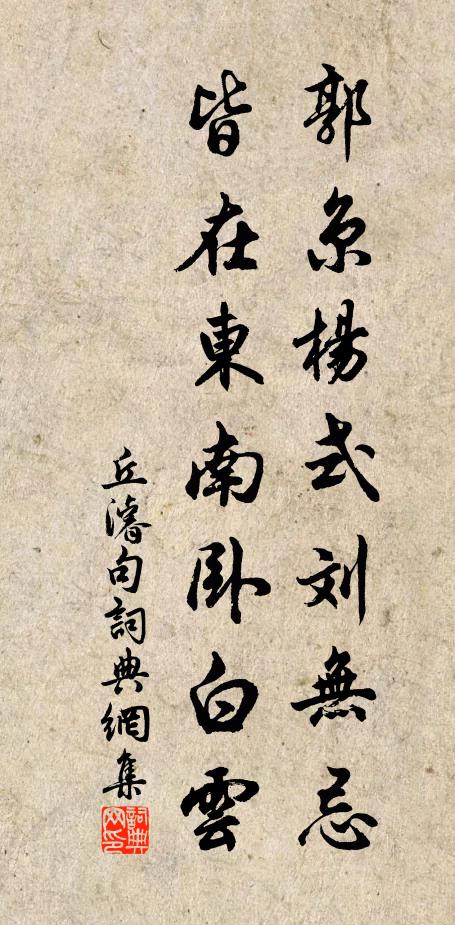 郭京楊式刘無忌
皆在東南卧白雲
丘濬句詞典網集
詞典网印